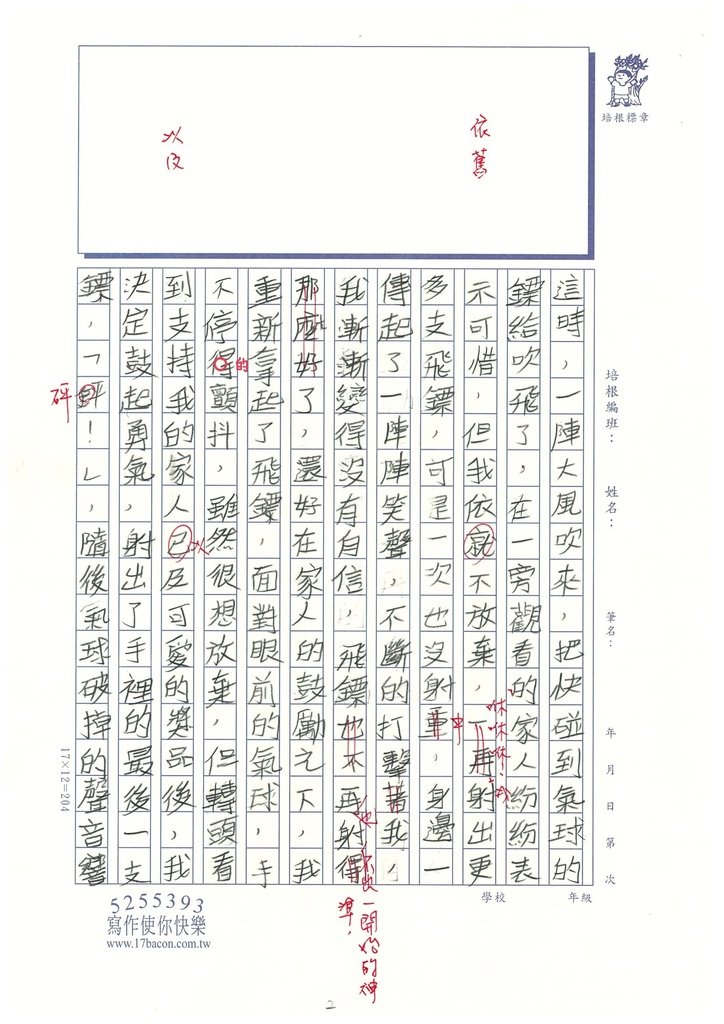 培根標章
依舊
以及
培根編班：
姓名：
筆名：
年 月 日 第 次
年級
學校
這時，一陣大風吹來，把快碰到氣球的
鏢給吹飛了，在一旁觀看的家人紛紛表
示可惜，但我依就不放棄，一再射出更
咻咻咻！我
多支飛鏢，可是一次也沒射重，身邊一
中
傳起了一陣陣笑聲，不斷的打擊著我，
我漸漸變得沒有自信，飛鏢也不再射得
一開始的神準，
那麼好了，還好在家人的鼓勵之下，我
重新拿起了飛鏢，面對眼前的氣球，手
不停得顫抖，雖然很想放棄，但轉頭看
的
到支持我的家人已及可愛的獎品後，我
以
決定鼓起勇氣，射出了手裡的最後一支
鏢，「！」，隨後氣球破掉的聲音響
砰
17×12=204
5255393
寫作使你快樂
www.17bacon.com.tw
2